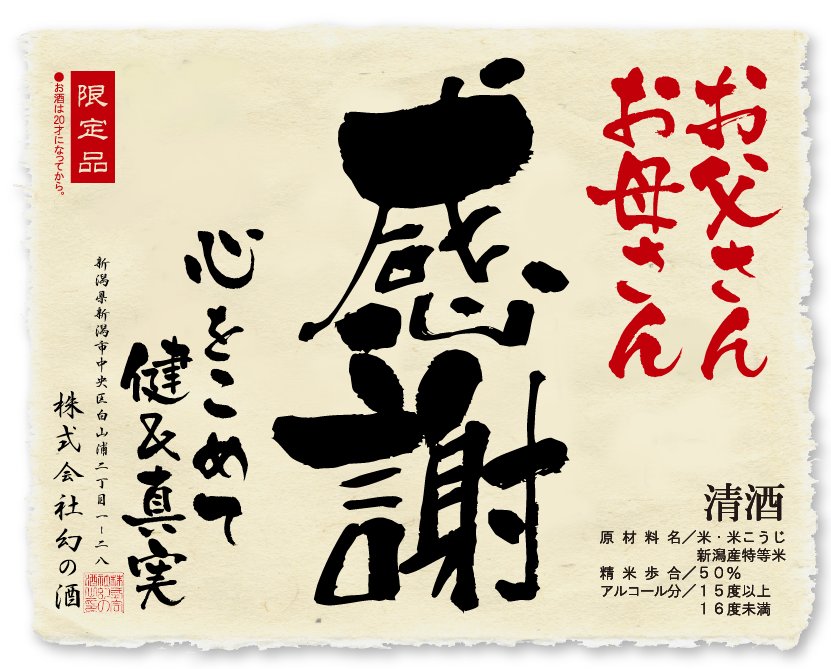 お父さん
お母さん
感謝
心をこめて
健&真実
限定品
●お酒は20才になってから。
新潟県新潟市中央区白山浦二丁目一ー二八
株式会社幻の酒
清酒
原材料名／米・米こうじ
新潟産特等米
精米歩合／５０％
アルコール分／１５度以上
１６度未満